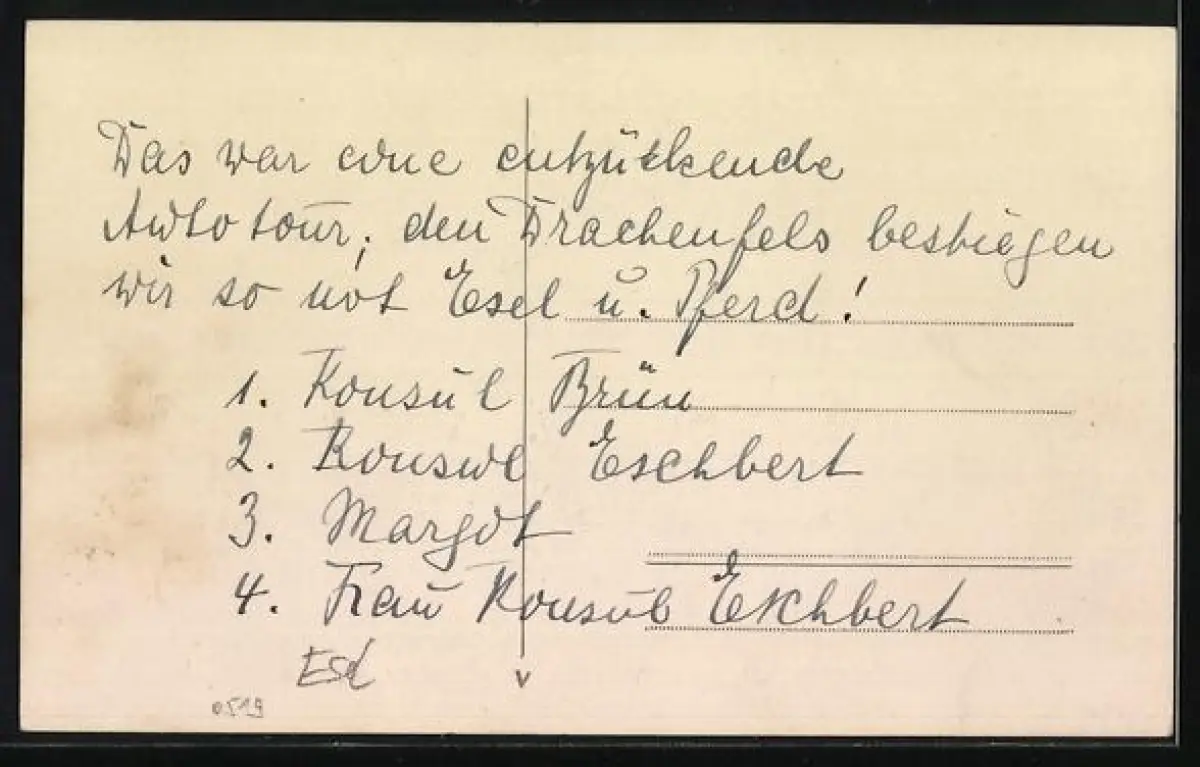 Das war eine entzückende
Autotour, den Drachenfels bestiegen
wir so mit Esel u. Pferd!
1. Konsul Brün
2. Konsul Eschbert
3. Margot
4. Frau Konsul Eschbert
Esel
0519
v